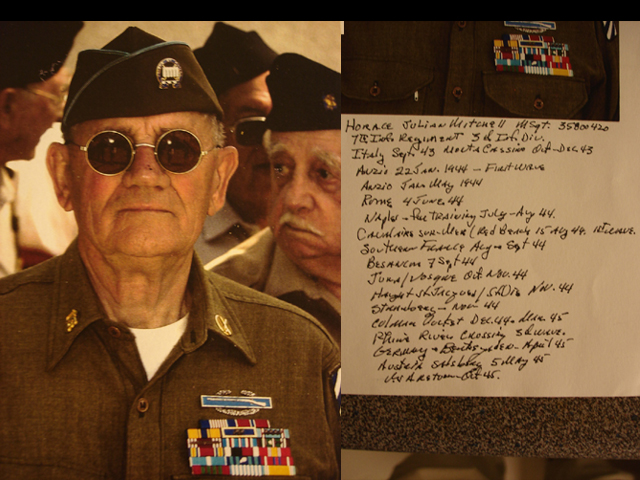 HORACE JULIAN MITCHELL MSgt. 35800420
7th Inf. Regiment 3d Inf. Div.
Italy Sept. 43 Monte Cassino Oct-Dec. 43
Anzio 22 Jan. 1944 - First Wave
Anzio Jan-May 1944
Rome 4 June 44
Naples - Pre Training July-Aug 44.
Cavalaire-sur-Mer (Red Beach 15 Aug 44. 1st Wave.
Southern France Aug-Sept 44
Besancon 7 Sept 44
Jura/Vosges Oct. Nov. 44
Nov. 44
Strasbourg - Nov. 44
Colmar Pocket Dec. 44 - Mar. 45
Rhine River Crossing 3d Wave.
Germany - April 45
Austria Salzburg 5 May 45
Oct 45.